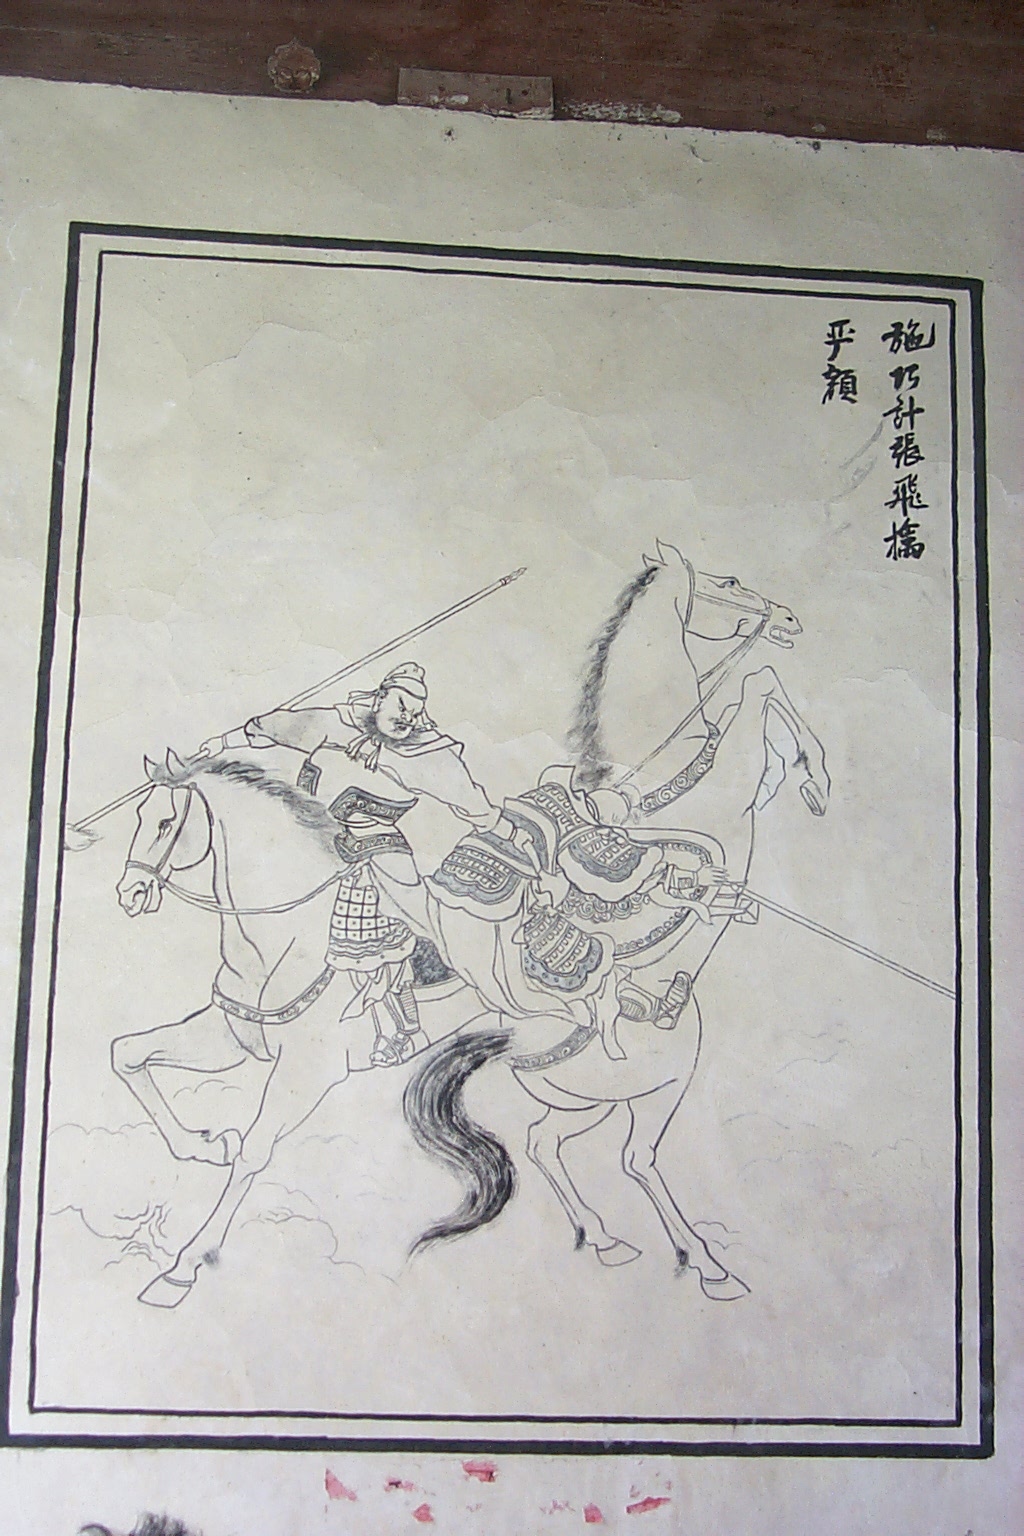 施巧計張飛擒
严顔